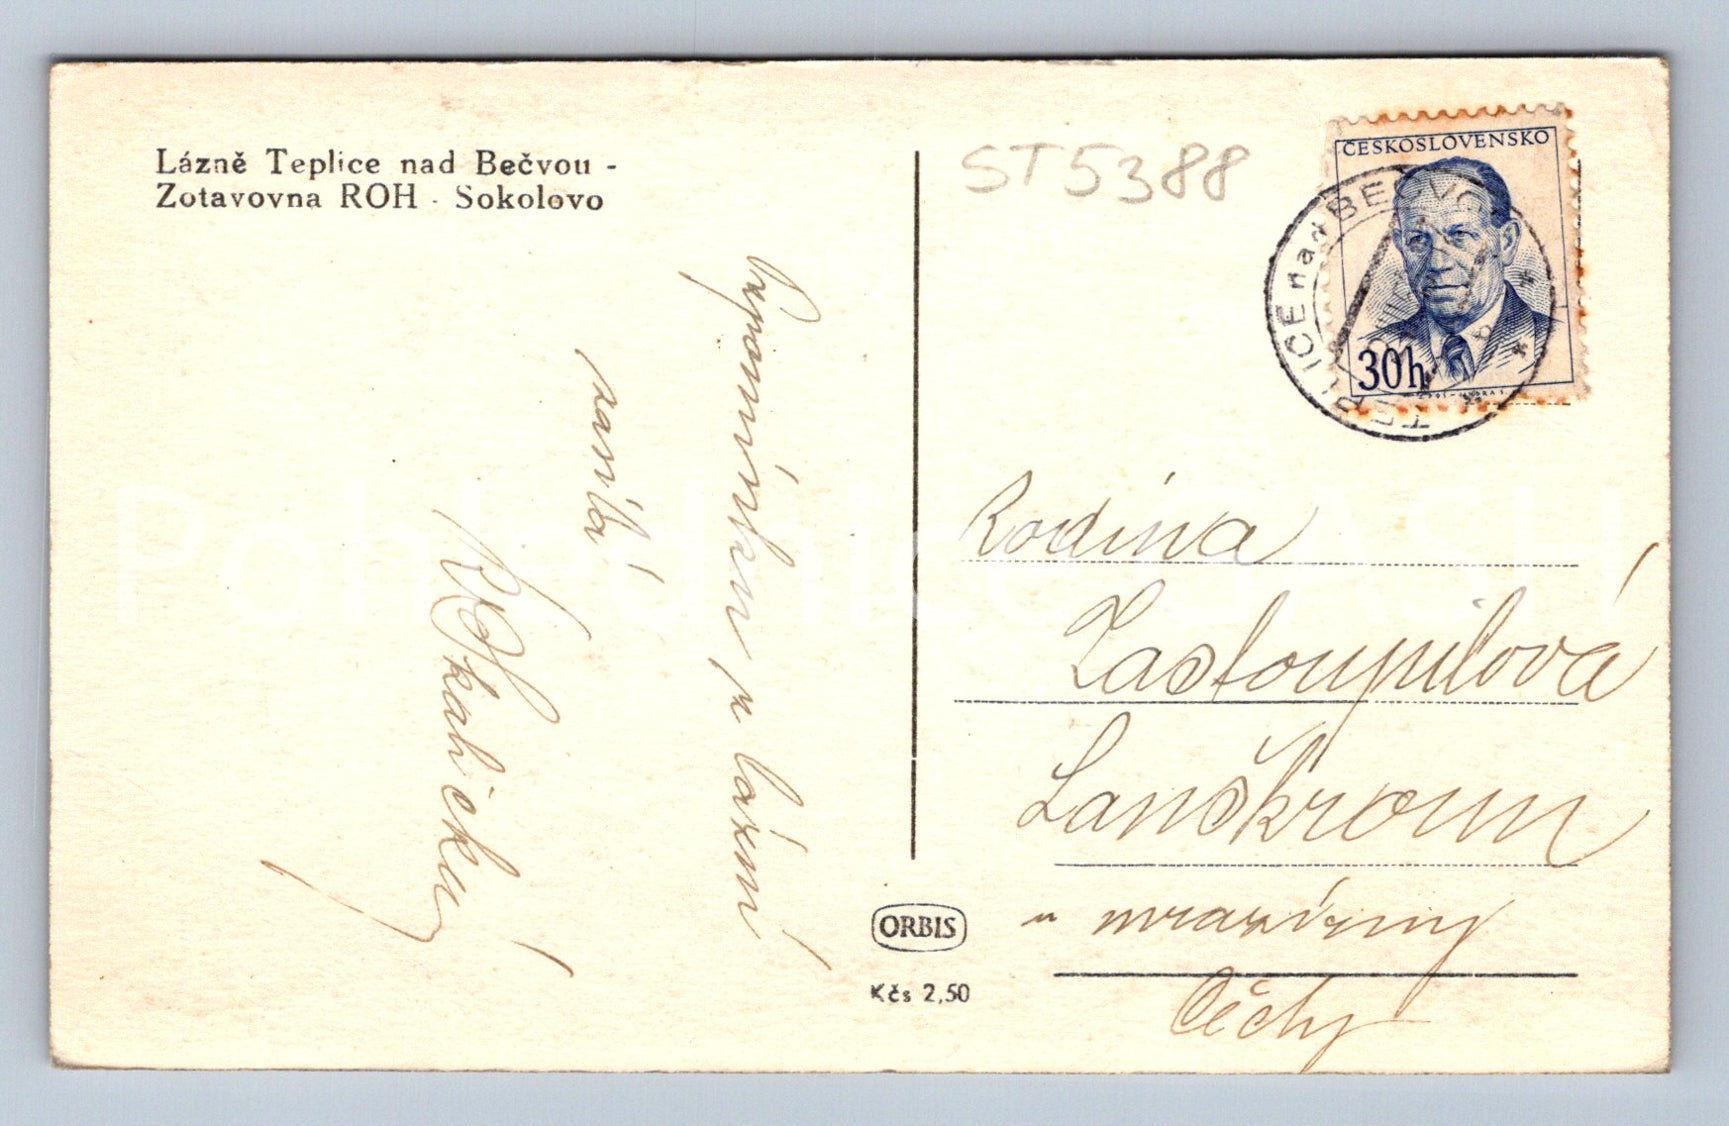 Lázně Teplice nad Bečvou -
Zotavovna ROH - Sokolovo
ST5388
ČESKOSLOVENSKO
30h
TEPLICE nad BEČVOU
Vzpomínkou z lázní
zasílá
Skaličkuj
Rodina
Zastoupilová
Lanškroun
u mrazírny
Čechy
ORBIS
Kčs 2,50